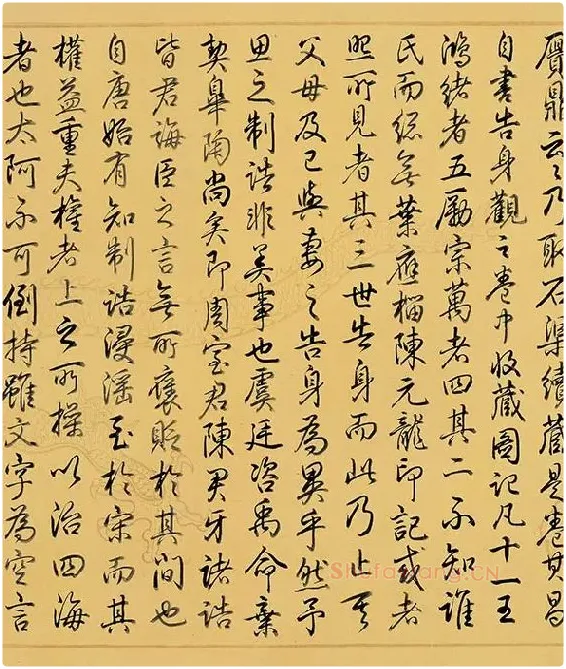 贗鼎云云乃取石渠續藏是卷其昌
自書告身觀之卷中收藏圖記凡十一王
鴻緒者五勵宗萬者四其二不知誰
氏而總無葉應榴陳元龍印記或者
熙所見者其三世告身而此乃止其
父母及己與妻之告身為異乎然予
思之制誥非美事也虞廷咨禹命棄
契臯陶尚矣即周室君陳君牙諸誥
皆君誨臣之言無所褒貶於其間也
自唐始有知制誥浸淫至於宋而其
權益重夫權者上之所操以治四海
者也太阿不可倒持雖文字為空言
Shufawang.CN